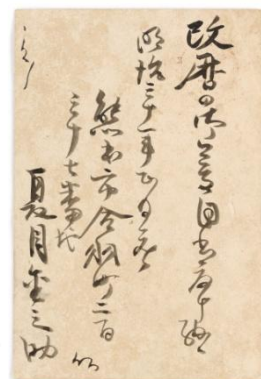 改暦の御慶目出度申納候
明治三十一年正月元旦
熊本市合羽町二百
三十七番地
夏目金之助